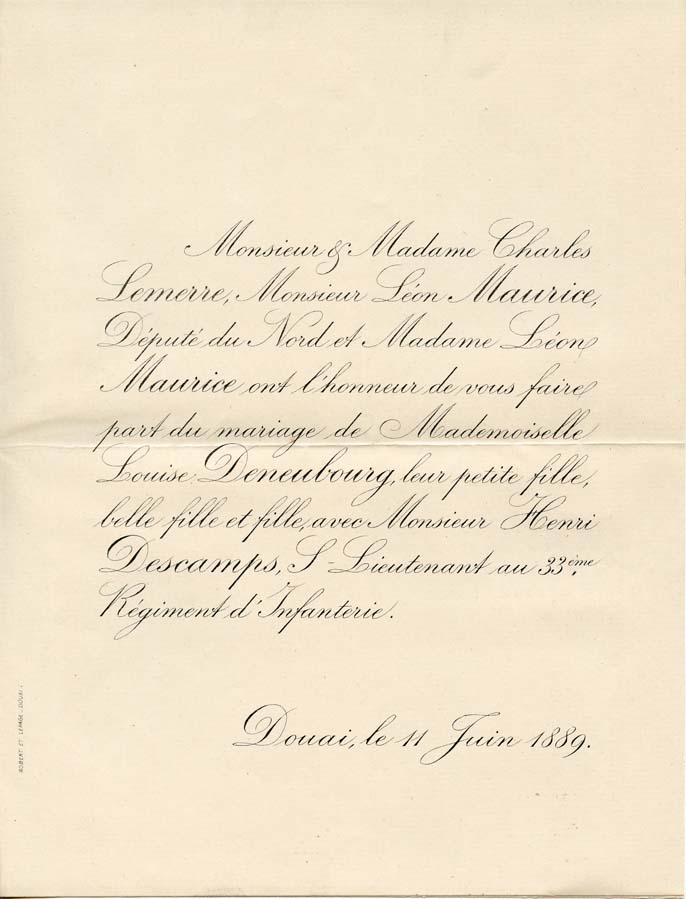 Monsieur & Madame Charles
Lemerre, Monsieur Léon Maurice,
Député du Nord et Madame Léon
Maurice ont l'honneur de vous faire
part du mariage de Mademoiselle
Louise Deneubourg, leur petite fille,
belle fille et fille, avec Monsieur Henri
Descamps, S-Lieutenant au 33ème
Régiment d'Infanterie.
Douai, le 11 Juin 1889.
ROBERT ET LEPAGE - DOUAI